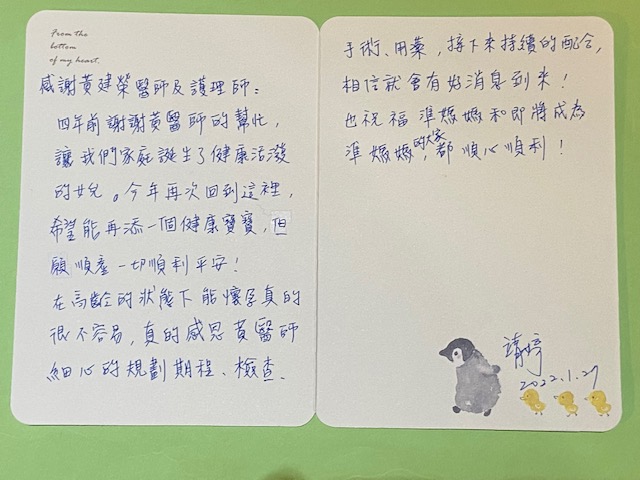 From the
bottom
of my heart.
感謝黃建榮醫師及護理師：
四年前謝謝黃醫師的幫忙，
讓我們家庭誕生了健康活潑
的女兒。今年再次回到這裡，
希望能再添一個健康寶寶，但
願順產一切順利平安！
在高齡的狀態下能懷孕真的
很不容易，真的感恩黃醫師
細心的規劃期程、檢查、
手術、用藥，接下來持續的配合，
相信就會有好消息到來！
也祝福準媽媽和即將成為
準媽媽的大家，都順心順利！
靖婷
2022.1.27